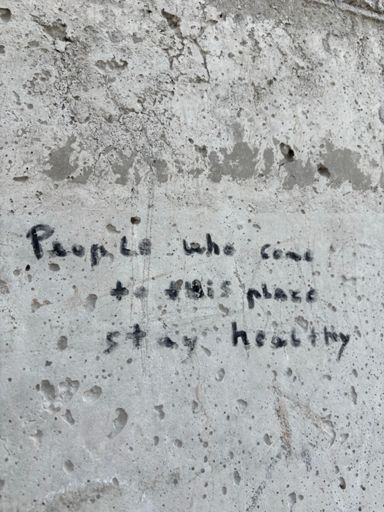 People who come
to this place
stay healthy